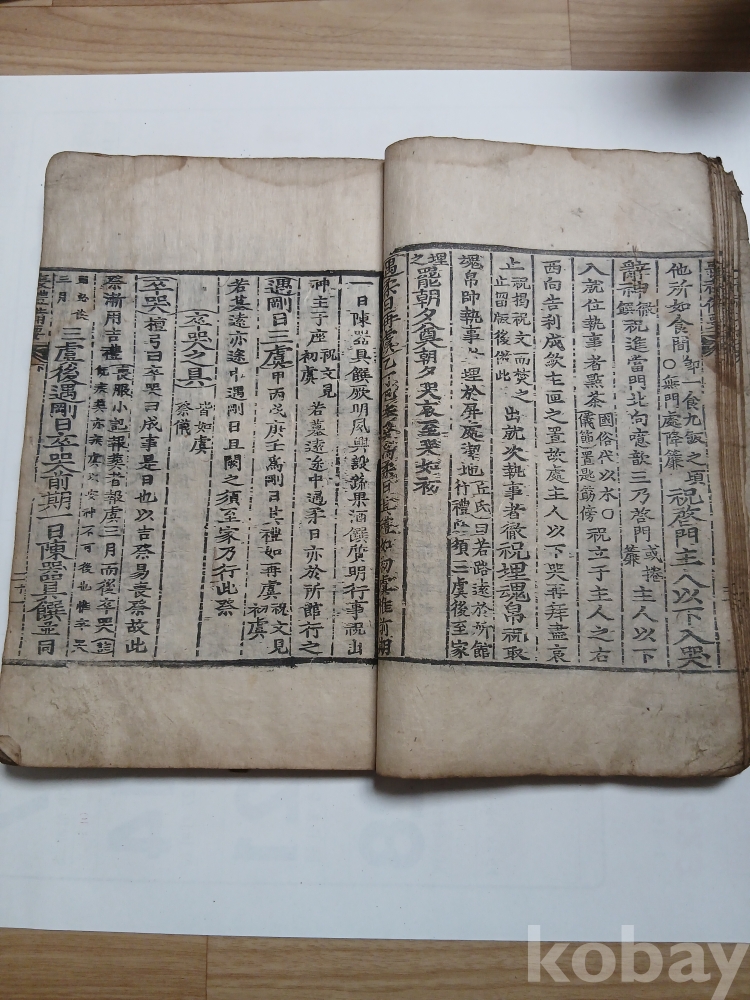 他所如食間一食九飯之頃祝啓門主人以下入哭
○無門處降簾
辭神祝進當門北向噫歆三乃啓門主人以下
或捲簾
入就位執事者點茶祝立于主人之右
國俗代以水○
儀節置匙筯傍
西向告利成歛主匣之置故處主人以下哭再拜盡哀
止出就次執事者徹祝埋魂帛祝取
祝揭祝文而焚之
止留版後倣此
魂帛帥執事者埋於屏處潔地
丘氏曰若路遠於所館
行禮必須三虞後至家
埋之
罷朝夕奠朝夕哭哀至哭如初
遇柔日再虞
一日陳器具饌厥明夙興設蔬果酒饌質明行事祝出
神主于座若墓遠途中遇柔日亦於所館行之
祝文見
初虞
遇剛日三虞甲丙戊庚壬爲剛日其禮如再虞
祝文見
初虞
若墓遠亦途中遇剛日且闕之須至家乃行此祭
卒哭之具
皆如虞
祭儀
卒哭檀弓曰卒哭曰成事是日也以吉祭易喪祭故此
祭漸用吉禮
喪服小記報葬者報虞三月而後卒哭
三月
三虞後遇剛日卒哭前期一日陳器具饌並同
kobay